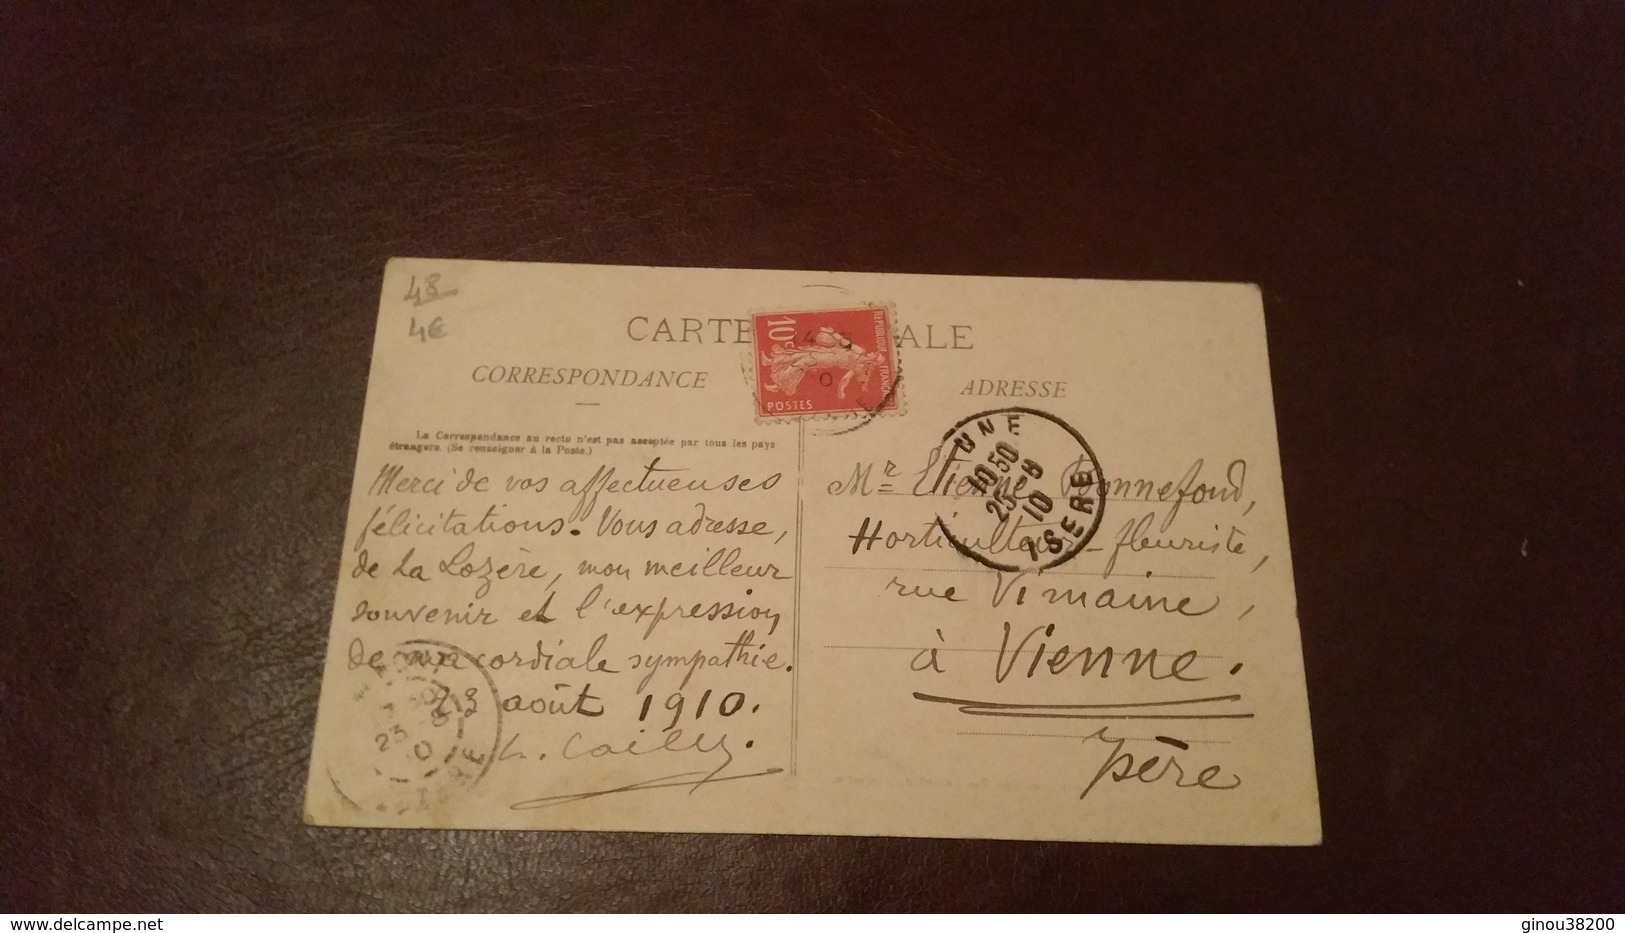 48
4€
CARTE ALE
CORRESPONDANCE
La Correspondance au recto n'est pas acceptée par tous les pays
étrangers. (Se renseigner à la Poste.)
Merci de vos affectueuses
félicitations. Vous adresse,
de La Lozère, mon meilleur
souvenir et l'expression
de ma cordiale sympathie.
23 août 1910.
RÉPUBLIQUE FRANÇAISE
10c
POSTES
ADRESSE
NNE
10 50
25-8
10
ISERE
Mr Etienne Bonnefond,
Horticulteur-fleuriste,
rue Vimaine,
à Vienne.
Isère
delcampe.net
ginou38200